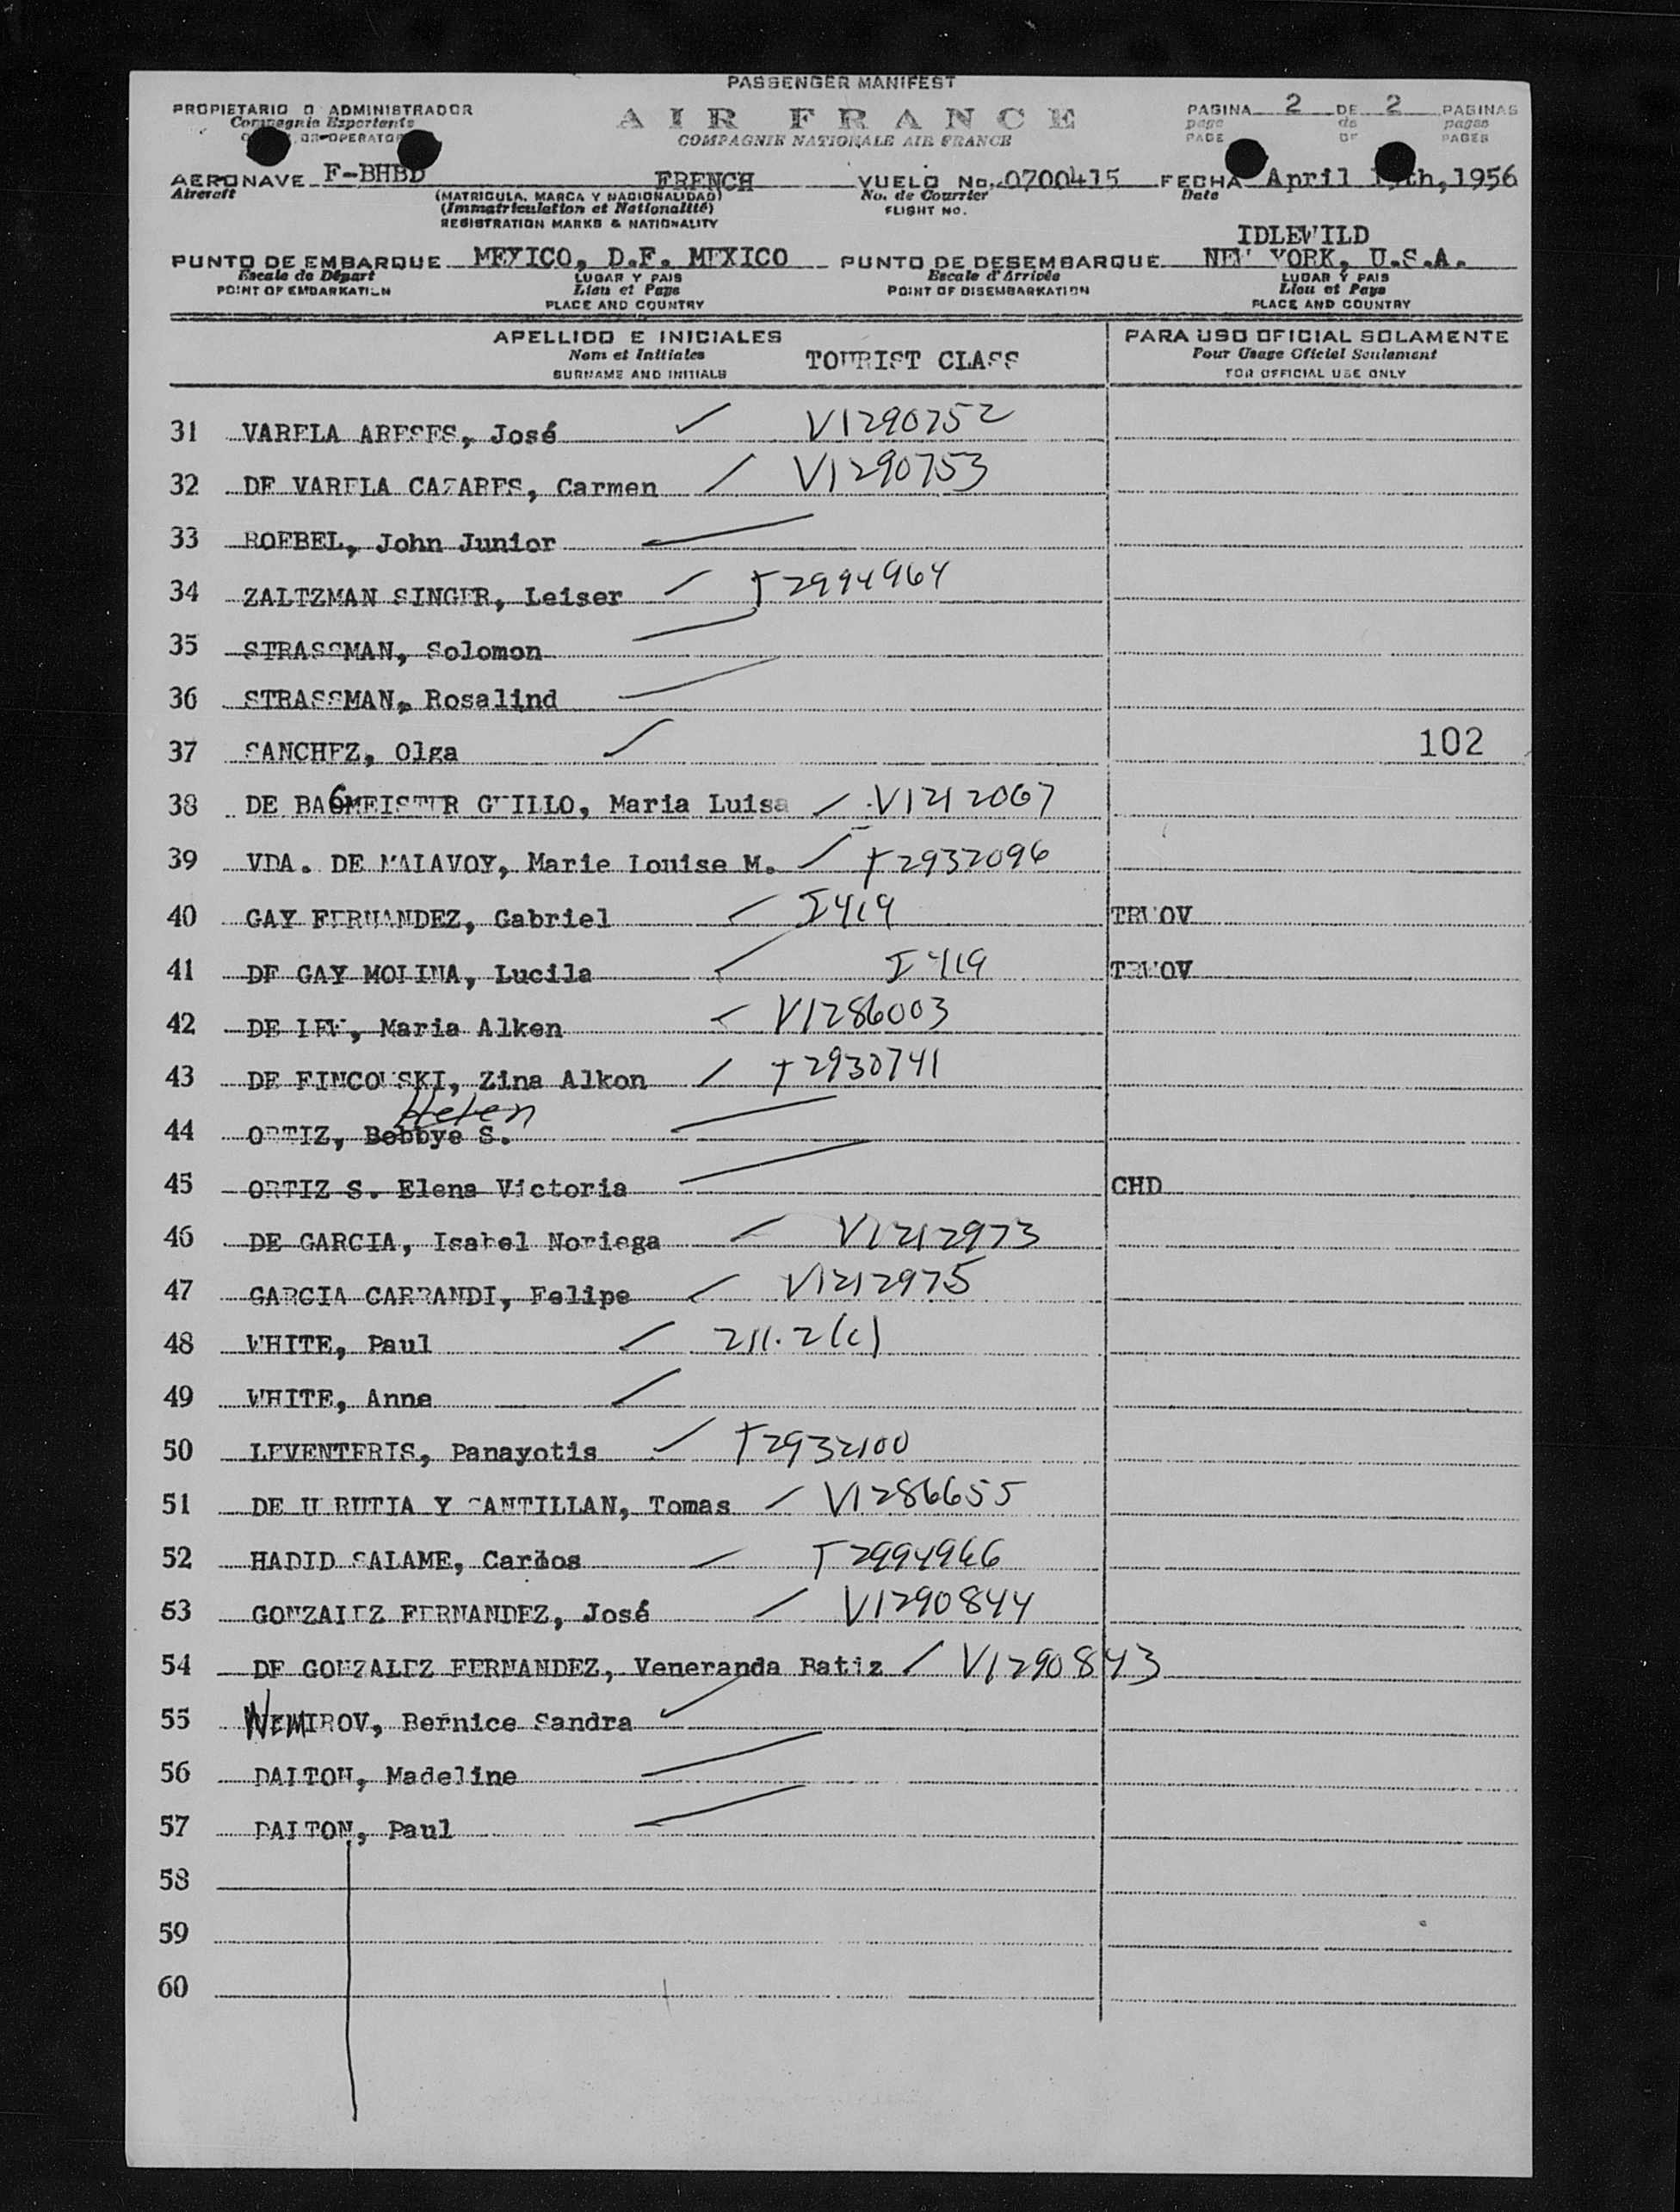 PASSENGER MANIFEST
PROPIETARIO O ADMINISTRADOR
Compagnie Exportante
OR OPERATOR
AIR FRANCE
COMPAGNIE NATIONALE AIR FRANCE
PAGINA 2 DE 2 PAGINAS
page de pages
PAGE OF PAGES
AERONAVE F-BHBD FRENCH VUELO No. 0700415 FECHA April th, 1956
Aircraft (MATRICULA, MARCA Y NACIONALIDAD) No. de Courrier Date
(Immatriculation et Nationalité) FLIGHT NO.
REGISTRATION MARKS & NATIONALITY
IDLEWILD
PUNTO DE EMBARQUE MEXICO, D.F. MEXICO PUNTO DE DESEMBARQUE NEW YORK, U.S.A.
Escale de Départ LUGAR Y PAIS Escale d'Arrivée LUGAR Y PAIS
POINT OF EMBARKATION Lieu et Pays POINT OF DISEMBARKATION Lieu et Pays
PLACE AND COUNTRY PLACE AND COUNTRY
APELLIDO E INICIALES PARA USO OFICIAL SOLAMENTE
Nom et Initiales TOURIST CLASS Pour Usage Officiel Seulement
SURNAME AND INITIALS FOR OFFICIAL USE ONLY
31 VARELA ARESES, José V1290752
32 DE VARELA CAZARES, Carmen V1290753
33 ROEBEL, John Junior
34 ZALTZMAN SINGER, Leiser T2994964
35 STRASSMAN, Solomon
36 STRASSMAN, Rosalind
37 SANCHEZ, Olga 102
38 DE BAGMEISTER GUILLO, Maria Luisa V1212067
39 VDA. DE MALAVOY, Marie Louise M. T2932096
40 GAY FERNANDEZ, Gabriel I419 TRWOV
41 DE GAY MOLINA, Lucila I419 TRWOV
42 DE LEW, Maria Alken V1286003
43 DE FINCOWSKI, Zina Alkon T2930741
Helen
44 ORTIZ, Bobbye S.
45 ORTIZ S. Elena Victoria CHD
46 DE GARCIA, Isabel Noriega V1212973
47 GARCIA CARRANDI, Felipe V1212975
48 WHITE, Paul 211.2(c)
49 WHITE, Anne
50 LEVENTERIS, Panayotis T2932100
51 DE URRUTIA Y SANTILLAN, Tomas V1286655
52 HADID SALAME, Carlos T2994966
53 GONZALEZ FERNANDEZ, José V1290844
54 DE GONZALEZ FERNANDEZ, Veneranda Batiz V1290843
55 NEMIROV, Bernice Sandra
56 DALTON, Madeline
57 DALTON, Paul
58
59
60